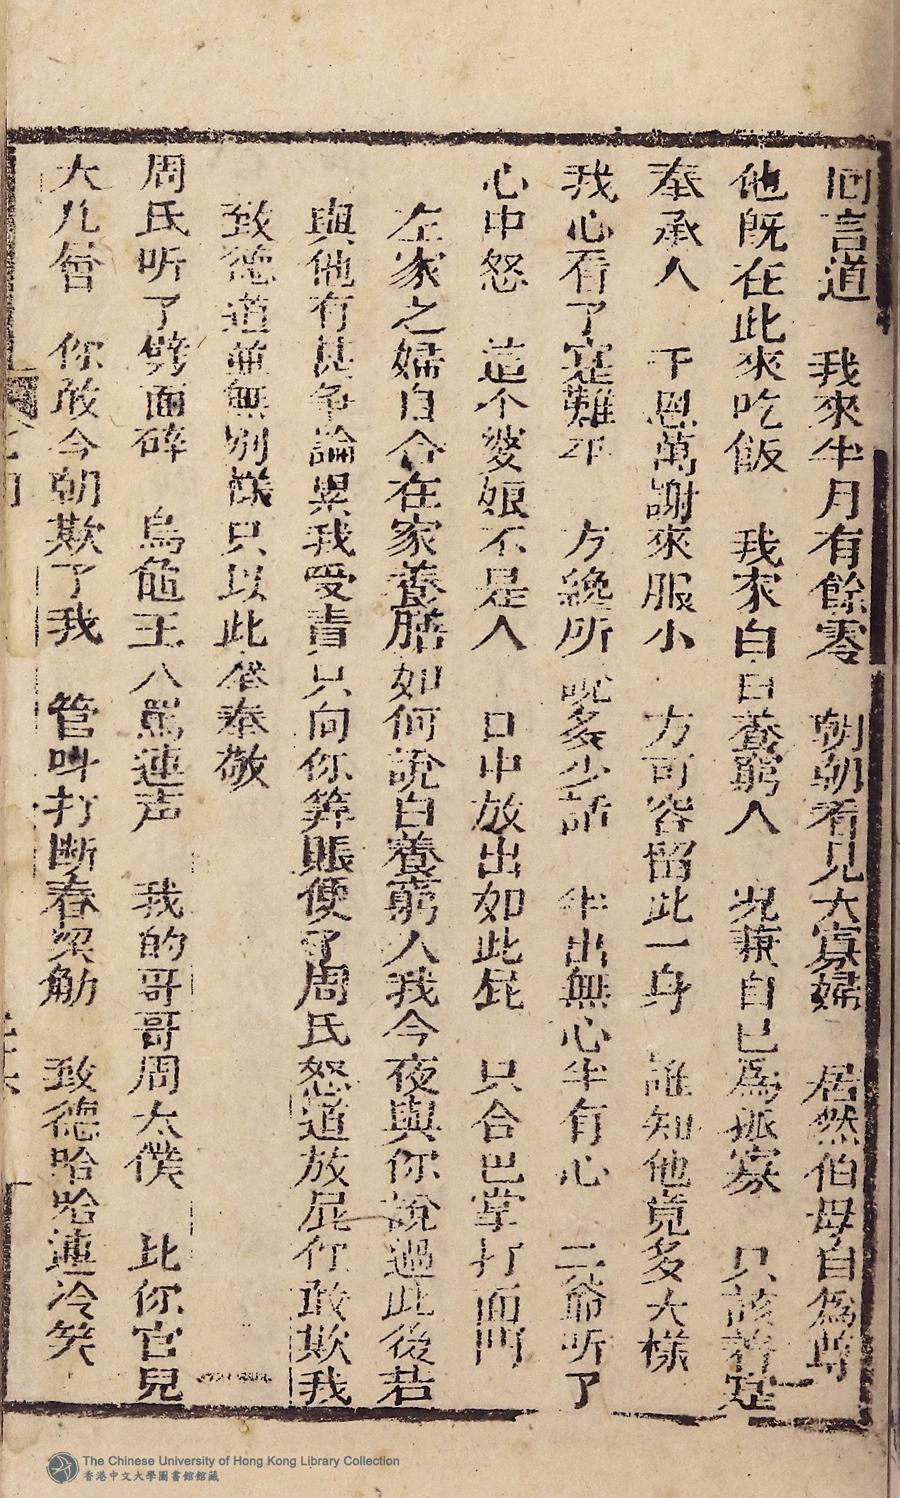 回言道　我來半月有餘零　朝朝看見大寡婦　居然伯母自為尊
他既在此來吃飯　我家白白養窮人　况兼自己為孤寡　只該着寔
奉承人　千恩萬謝來服小　方可容留此一身　誰知他竟多大樣
我心看了寔難平　方纔所說多少話　半出無心半有心　二爺听了
心中怒　這个婆娘不是人　口中放出如此屁　只合巴掌打面門
左家之婦自合在家養膳如何說白養窮人我今夜與你說過此後若
與他有甚争論累我受責只向你筭賬便了周氏怒道放屁你敢欺我
致德道並無別様只以此奉敬
周氏听了劈面碎　烏龜王八駡連声　我的哥哥周太僕　比你官兒
大几倍　你敢今朝欺了我　管叫打断春梁觔　致德哈哈連冷笑
The Chinese University of Hong Kong Library Collection
香港中文大學圖書館館藏